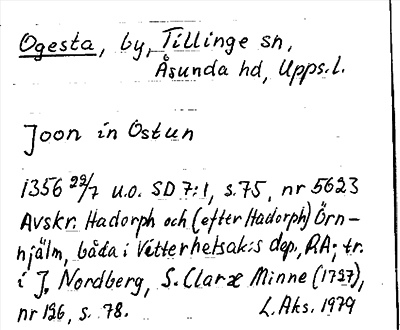 Ogesta, by, Tillinge sn,
Åsunda hd, Upps.l.
Joon in Ostun
1356 29/7 u.o. SD 7:1, s.75, nr 5623
Avskr. Hadorph och (efter Hadorph) Örn-
hjälm, båda i Vitterhetsak:s dep, RA; tr.
i J. Nordberg, S. Claræ Minne (1727),
nr 126, s. 78. L. Aks. 1979